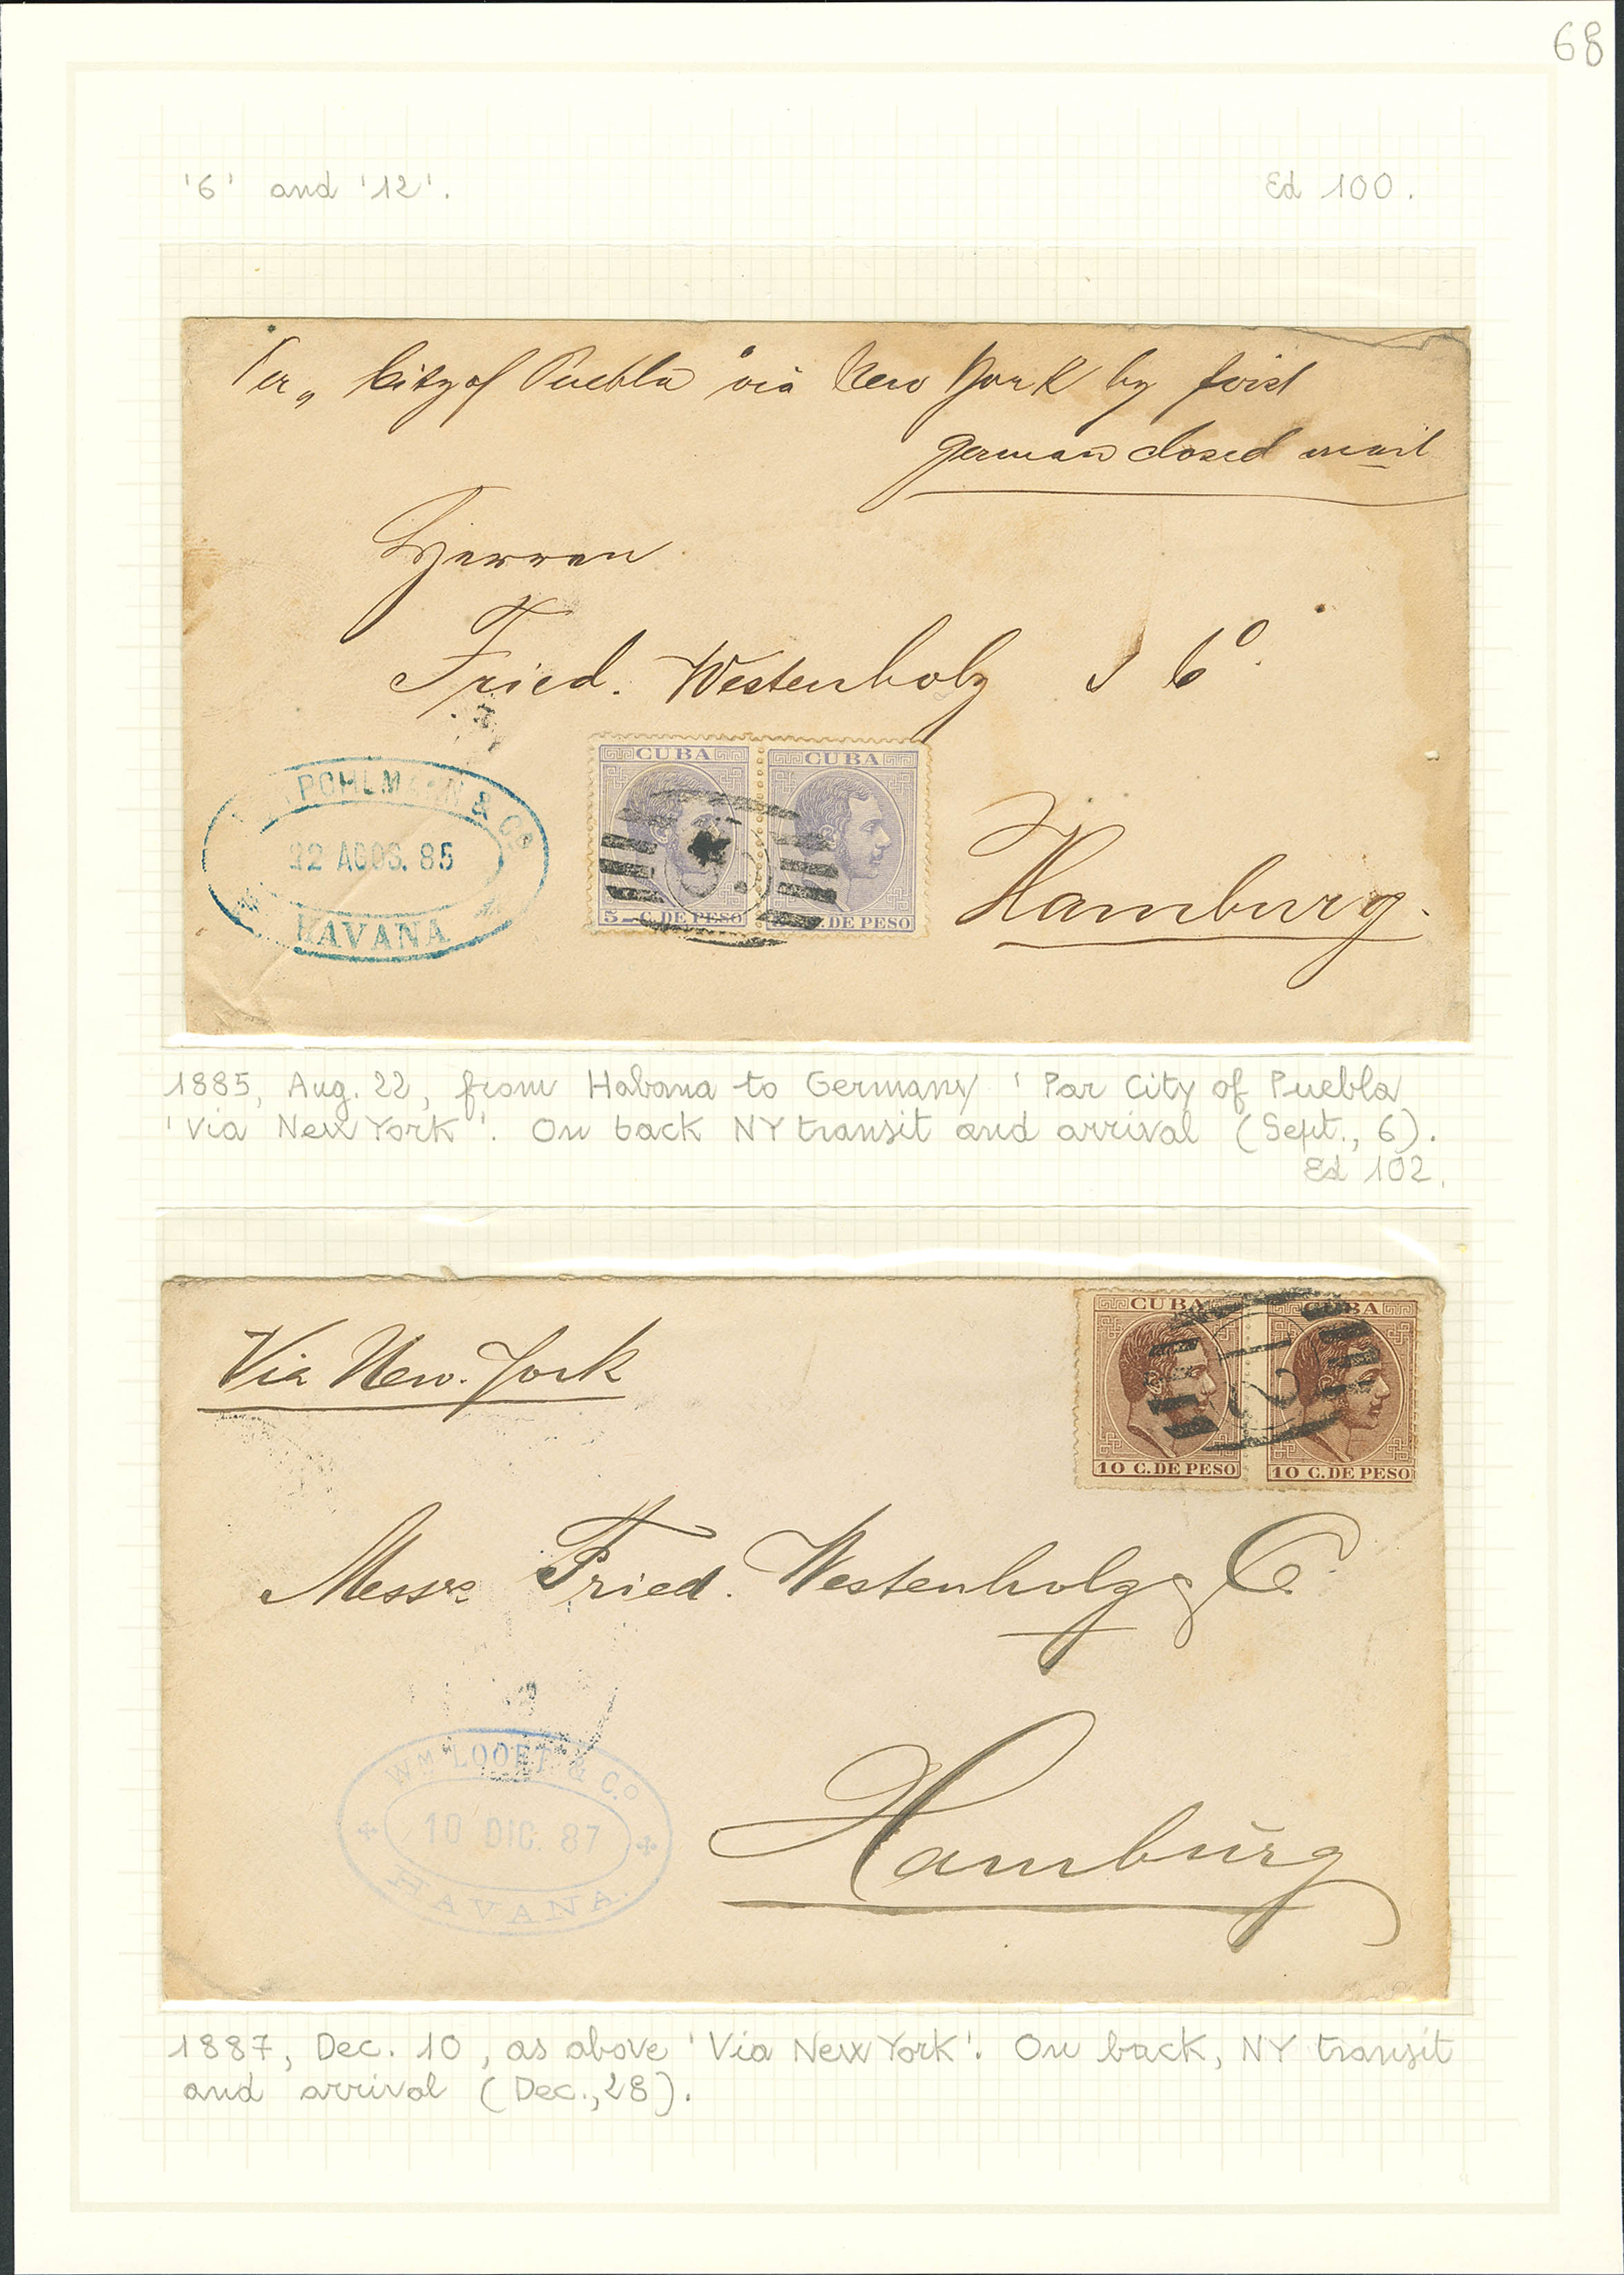 68
'6' and '12'.
Ed 100.
Per „ City of Puebla " via New York by first
german closed mail
Herren
Fried. Westenholz & Co.
POHLMANN & Co
22 AGOS. 85
HAVANA
CUBA CUBA
5 C. DE PESO C. DE PESO
Hamburg.
1885, Aug. 22, from Habana to Germany 'Par City of Puebla
'Via New York'. On back NY transit and arrival (Sept., 6).
Ed 102.
CUBA CUBA
12
10 C. DE PESO 10 C. DE PESO
Via New-York
Messrs Fried. Westenholz & C.
WM LOOFT & Co.
10 DIC. 87
HAVANA.
Hamburg
1887, Dec. 10, as above 'Via New York'. On back, NY transit
and arrival (Dec., 28).